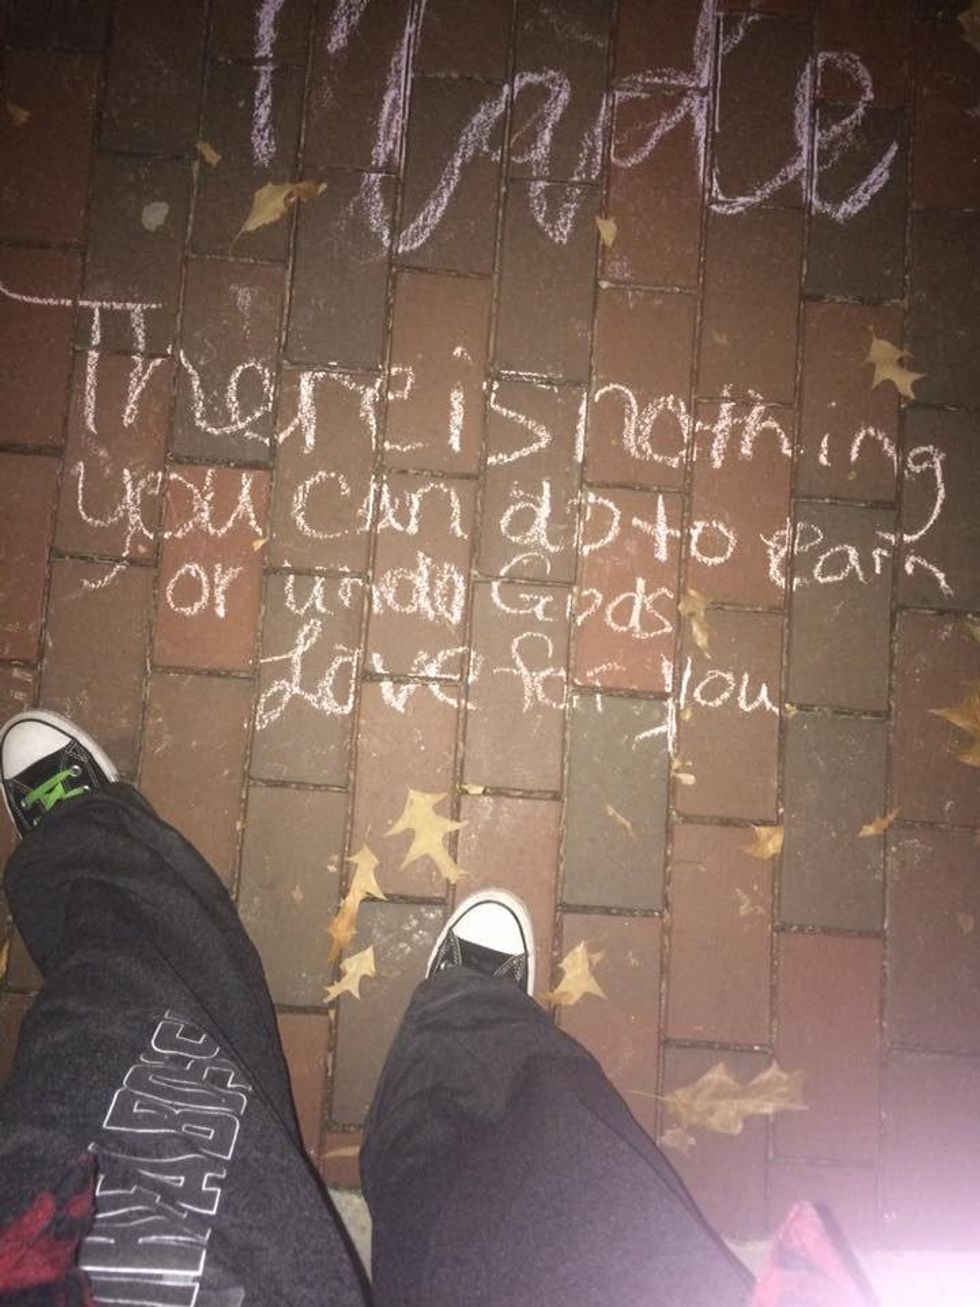 Made
There is nothing
you can do to earn
or undo Gods
Love for you